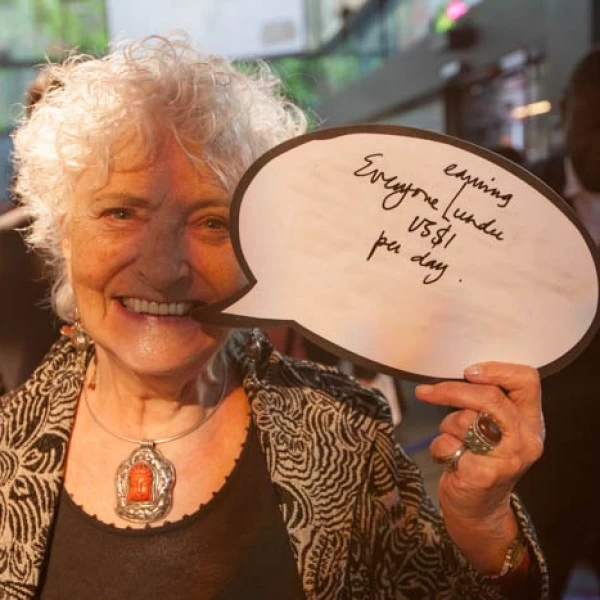 earning
Everyone / under
US$1
per day.